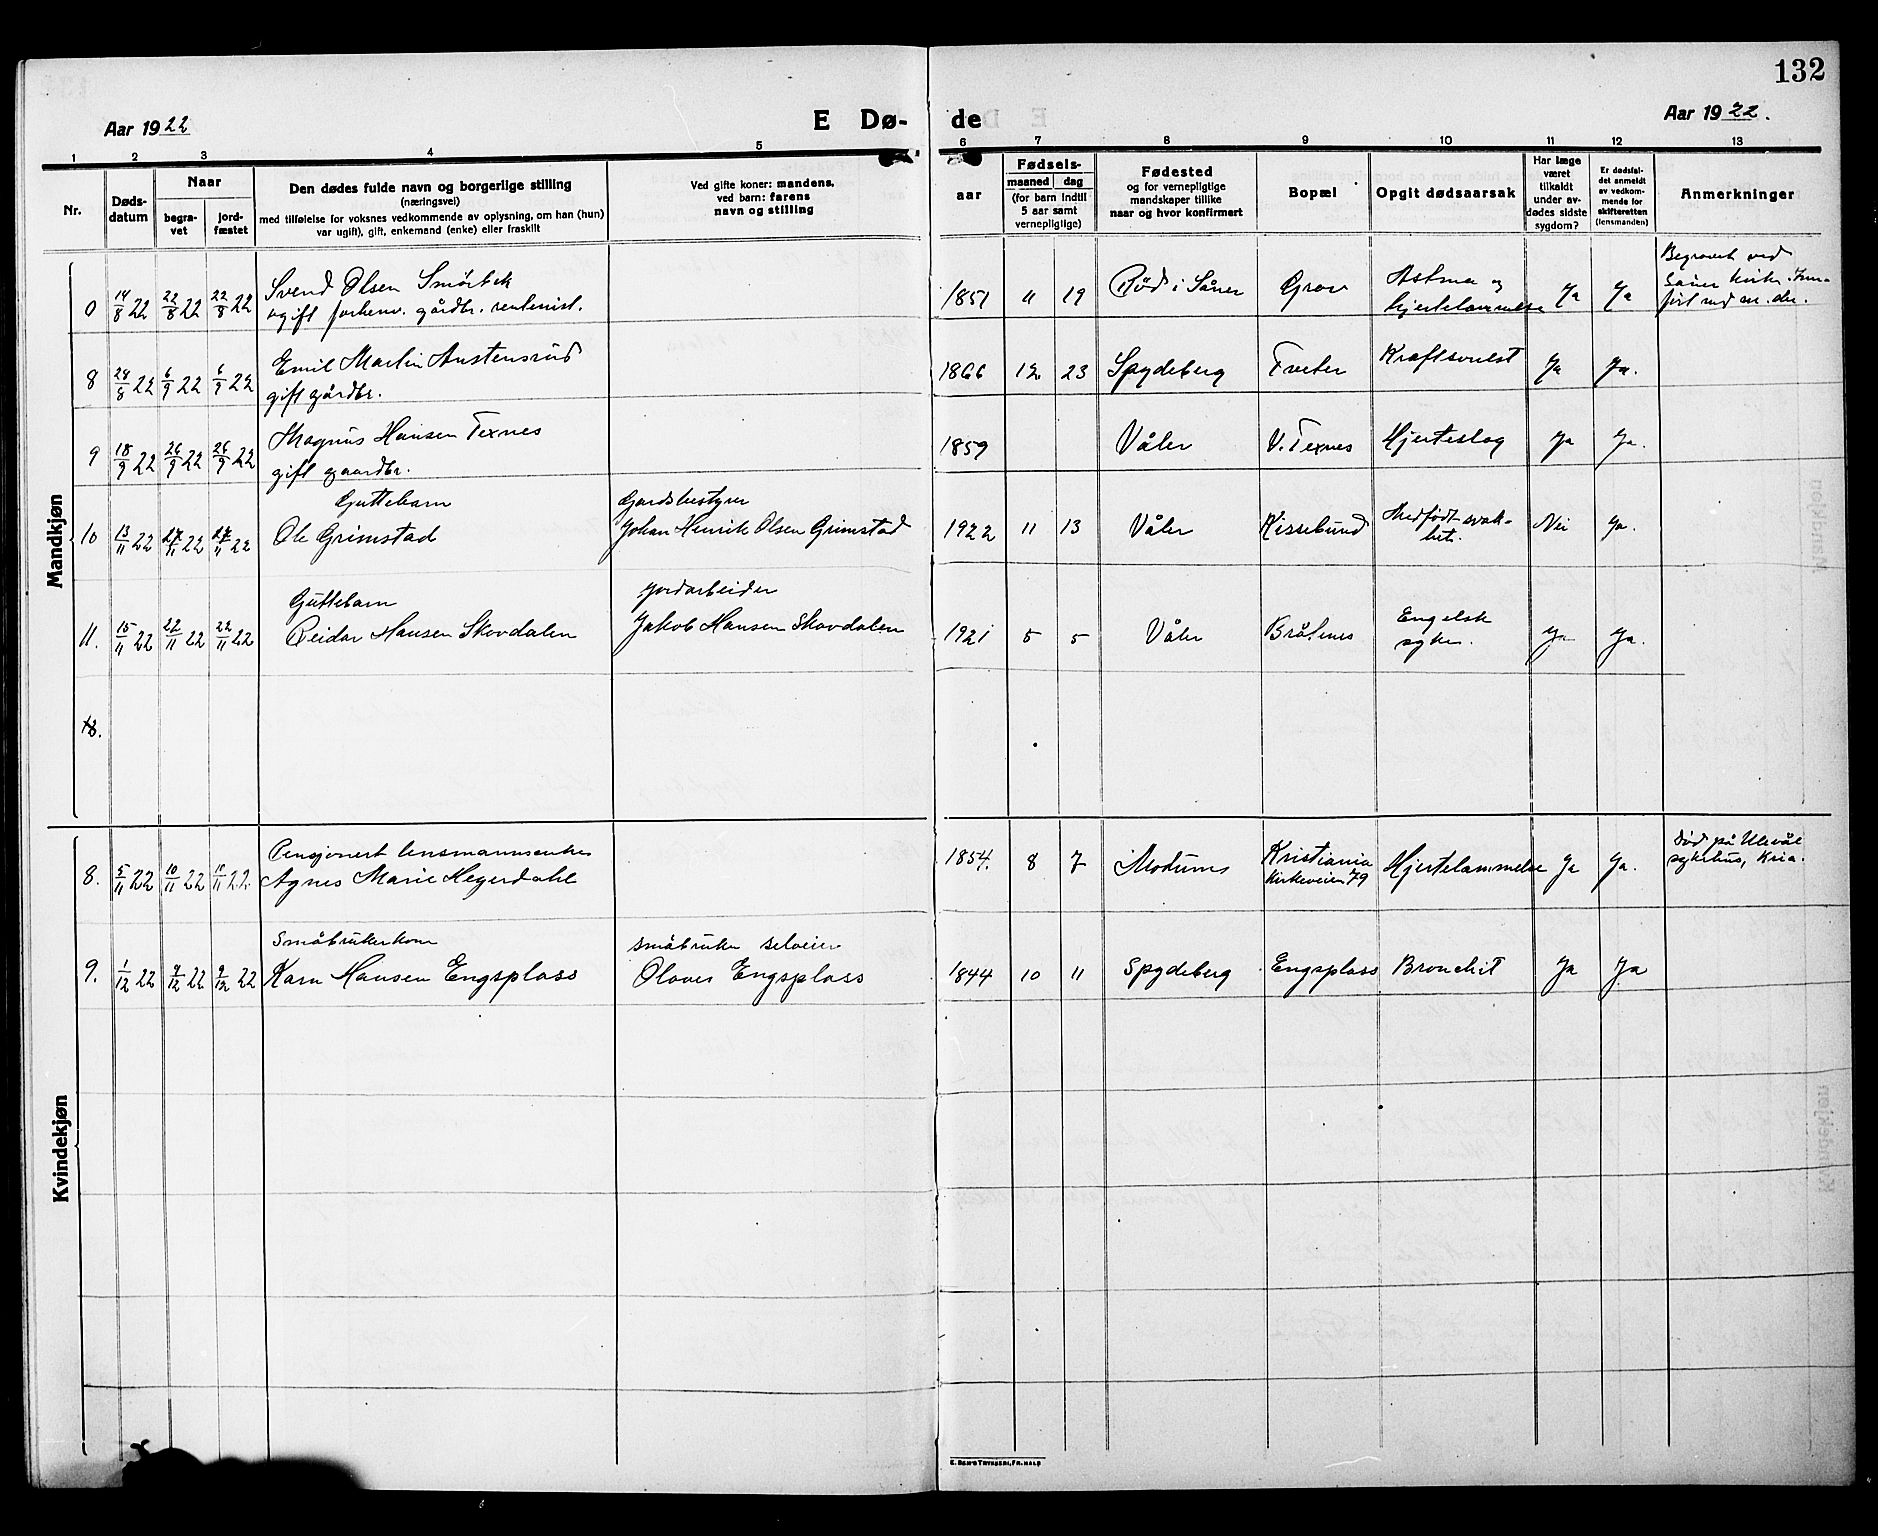 132
Aar 1922
E Dø-
de
Aar 1922.
1 2 3 4 5 6 7 8 9 10 11 12 13
Nr.
Døds-
datum
Naar
begra-
vet
jord-
fæstet
Den dødes fulde navn og borgerlige stilling
(næringsvei)
med tilføielse for voksnes vedkommende av oplysning, om han (hun)
var ugift), gift, enkemand (enke) eller fraskilt
Ved gifte koner: mandens,
ved barn: farens
navn og stilling
aar
Fødsels-
maaned dag
(for barn indtil
5 aar samt
vernepligtige)
Fødested
og for vernepligtige
mandskaper tillike
naar og hvor konfirmert
Bopæl
Opgit dødsaarsak
Har læge
været
tilkaldt
under av-
dødes sidste
sygdom?
Er dødsfal-
det anmeldt
av vedkom-
mende for
skifteretten
(lensmanden)
Anmerkninger
Mandkjøn
0 14/8 22 22/8 22 22/8 22
Svend Olsen Smørbek
ugift forhenv. gårdbr. rentenist.
1851 11 19 Rød i Såner Grov
Astma og
hjertelammelse
Ja Ja
Begravet ved
Såner kirke.
8 29/8 22 6/9 22 6/9 22
Emil Martin Austensrud
gift gårdbr.
1866 12 23 Spydeberg Tveter Kraftsvulst Ja Ja.
9 18/9 22 26/9 22 26/9 22
Magnus Hansen Texnes
gift gaardbr.
1859 Våler V. Texnes Hjerteslag Ja Ja.
10 13/11 22 11 22 11 22
Guttebarn
Ole Grimstad
Gardsbestyrer
Johan Henrik Olsen Grimstad
1922 11 13 Våler Kissebund
Medfødt svak-
het.
Nei Ja.
11. 15/11 22 22/11 22 22/11 22
Guttebarn
Reidar Hansen Skovdalen
Jordarbeider
Jakob Hansen Skovdalen
1921 5 5 Våler Bråtenes
Engelsk
syke.
Ja Ja.
Kvindekjøn
8. 5/11 22 10/11 22 11/11 22.
Pensjonert lensmannsenke
Agnes Marie Heyerdahl
1854. 8 7 Modums
Kristiania
Kirkeveien 79
Hjertelammelse Ja Ja.
Død på Ulevål
sykehus, Kria.
9. 1/12 22 9/12 22 9/12 22
Småbrukerkone
Karn Hansen Engsplass
småbruker selveier
Olaves Engsplass
1844 10 11 Spydeberg Engsplass Bronchit Ja Ja